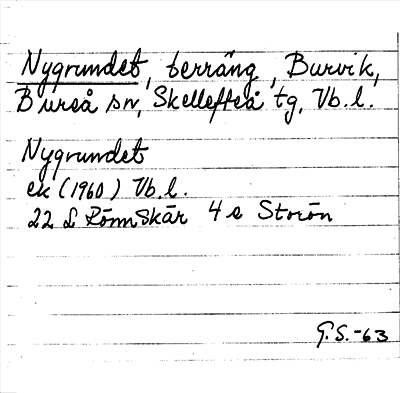 Nygrundet, terräng, Burvik,
Bureå sn, Skellefteå tg, Vb.l.
Nygrundet
ek (1960) Vb.l.
22 L Rönnskär 4 e Storön
G.S.-63